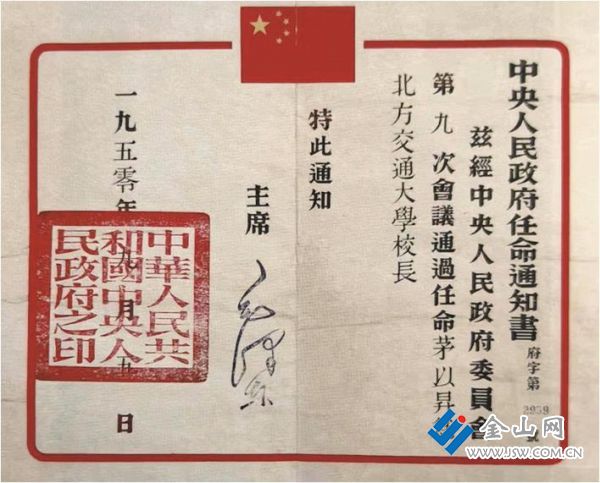 中央人民政府任命通知書
府字第 號
茲經中央人民政府委員會
第九次會議通過任命茅以昇
北方交通大學校長
特此通知
主席 毛澤东
一九五零年九月五日
中華人民共
和國中央人
民政府之印
金山网
WWW.JSW.COM.CN